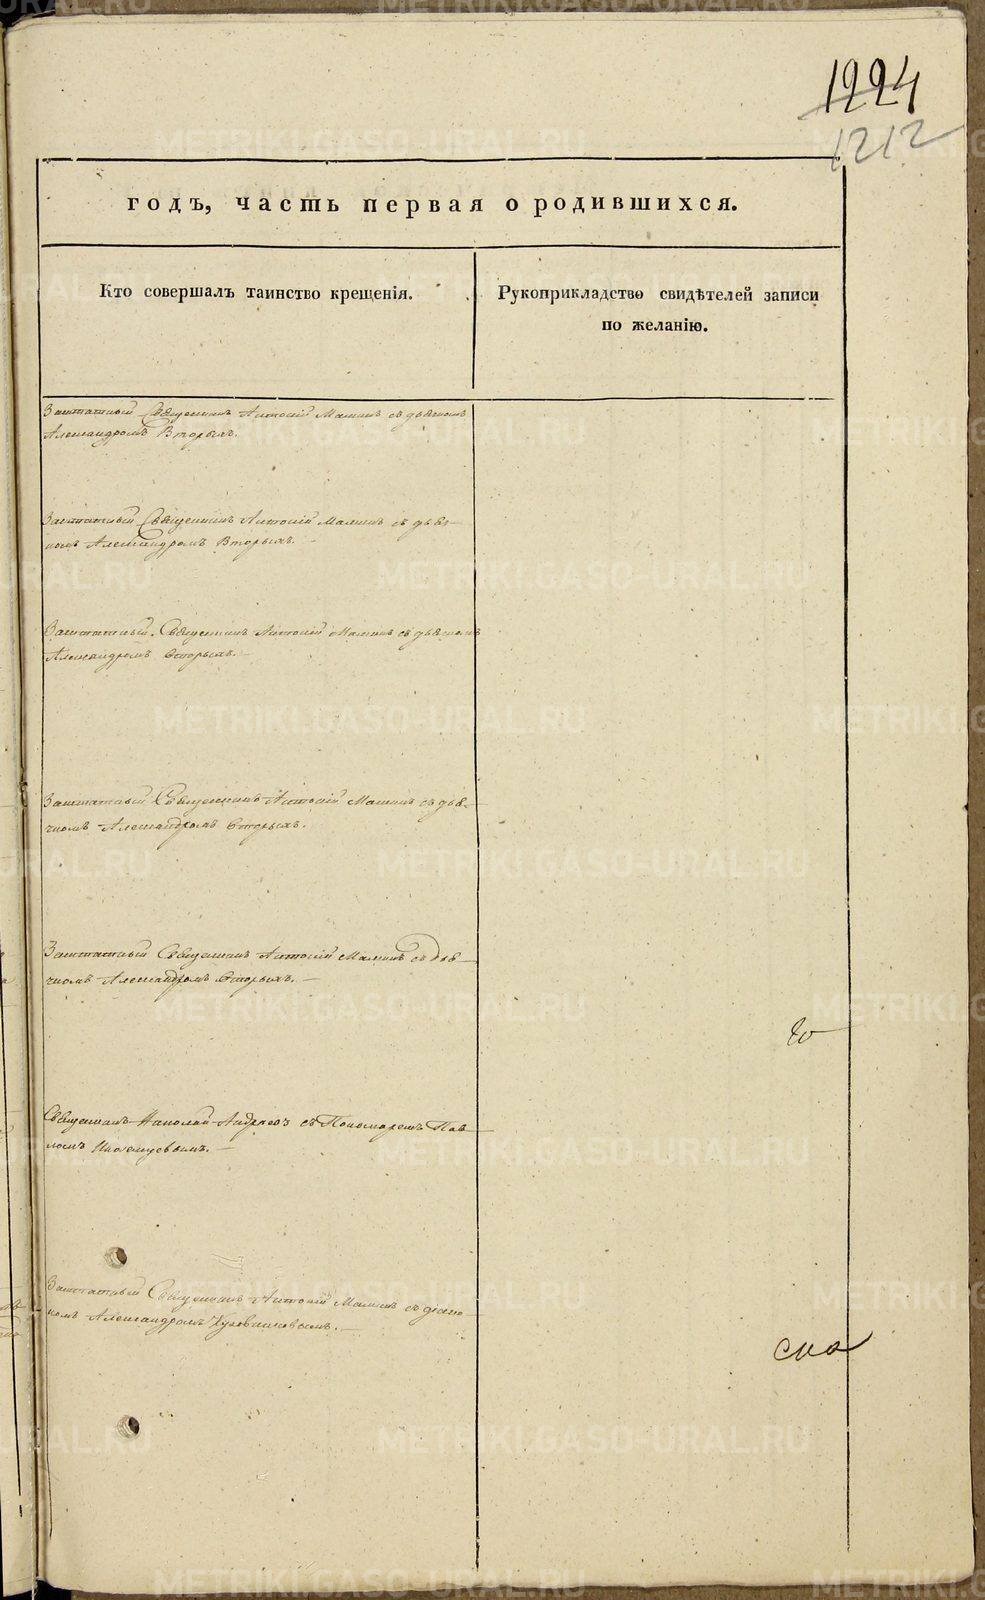 1224
1212
годъ, часть первая о родившихся.
Кто совершалъ таинство крещенія.
Рукоприкладство свидѣтелей записи
по желанію.
Заштатный Священникъ Антоній Маминъ съ дьячкомъ
Александромъ Вторыхъ.
Заштатный Священникъ Антоній Маминъ съ дьяч-
комъ Александромъ Вторыхъ. —
Заштатный Священникъ Антоній Маминъ съ дьячкомъ
Александромъ Вторыхъ. —
Заштатный Священникъ Антоній Маминъ съ дья-
чкомъ Александромъ Вторыхъ.
Заштатный Священникъ Антоній Маминъ съ дья-
чкомъ Александромъ Вторыхъ. —
Священникъ Николай Андреевъ съ Пономаремъ Пав-
ломъ
Заштатный Священникъ Антоній Маминъ съ діако-
номъ Александромъ
METRIKI.GASO-URAL.RU